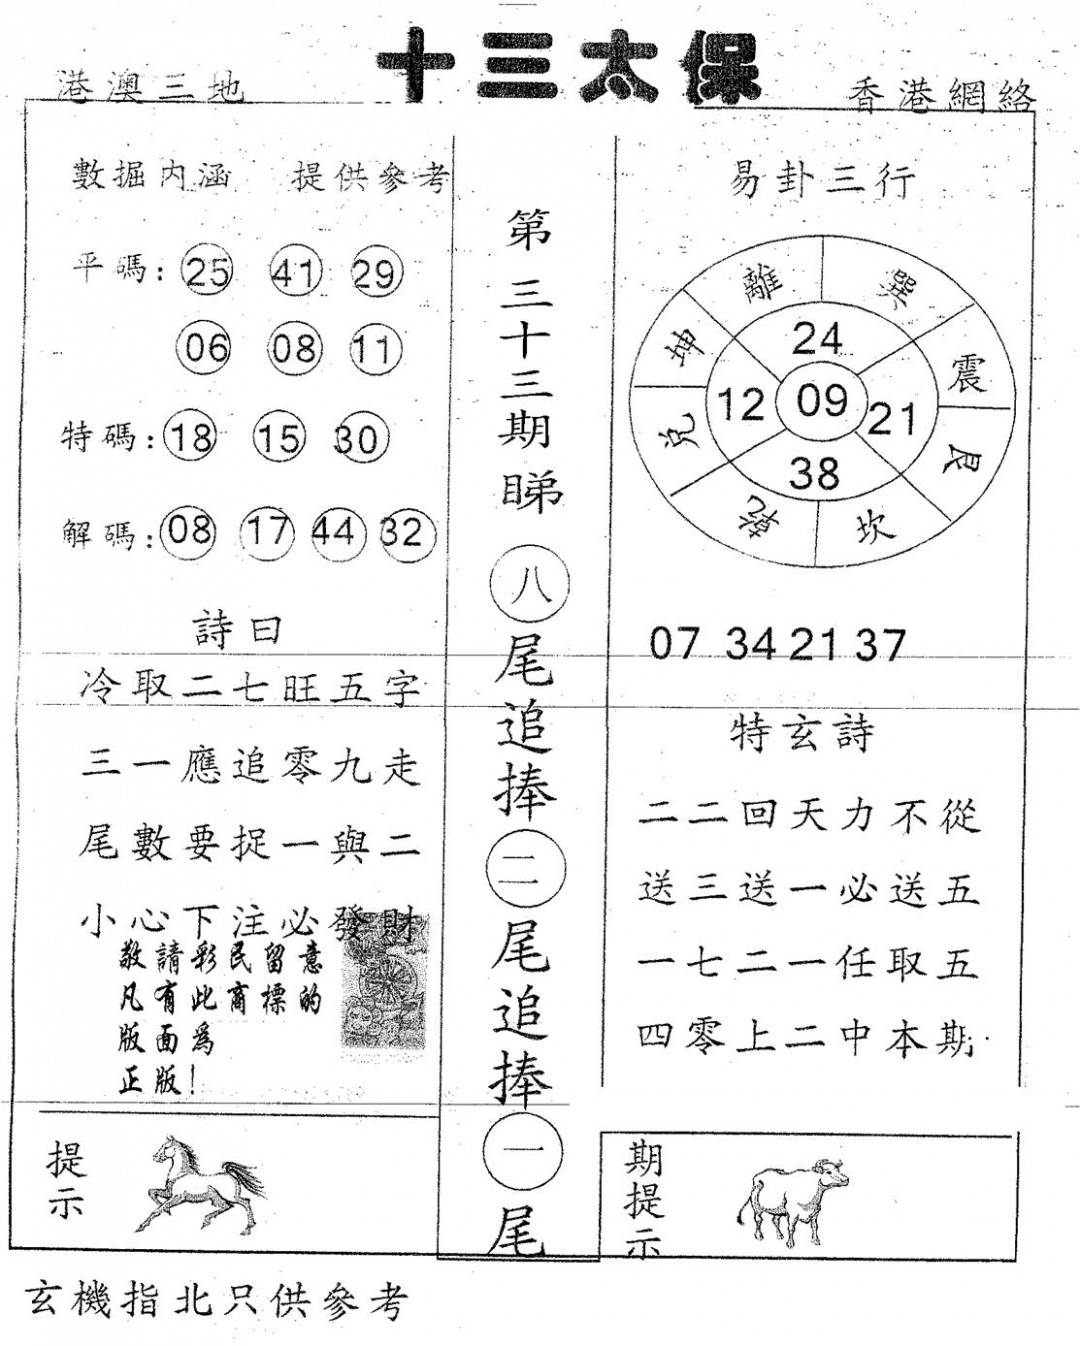 十三太保
港澳三地
香港網絡
數掘内涵 提供參考
平碼: 25 41 29
06 08 11
特碼: 18 15 30
解碼: 08 17 44 32
詩曰
冷取二七旺五字
三一應追零九走
尾數要捉一與二
小心下注必發財
敬請彩民留意
凡有此商標的
版面爲
正版!
提示
第三十三期睇八尾追捧二尾追捧一尾
易卦三行
離 巽
坤 震
兌 艮
乾 坎
24
12 09 21
38
07 34 21 37
特玄詩
二二回天力不從
送三送一必送五
一七二一任取五
四零上二中本期
期提示
玄機指北只供參考